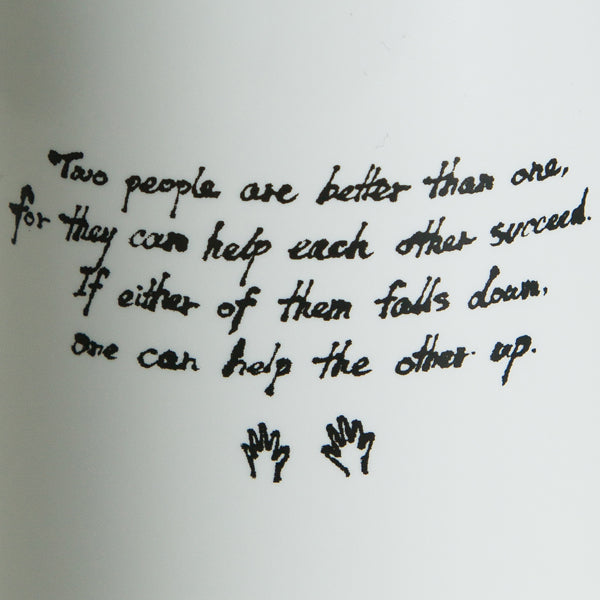 Two people are better than one,
for they can help each other succeed.
If either of them falls down,
one can help the other up.